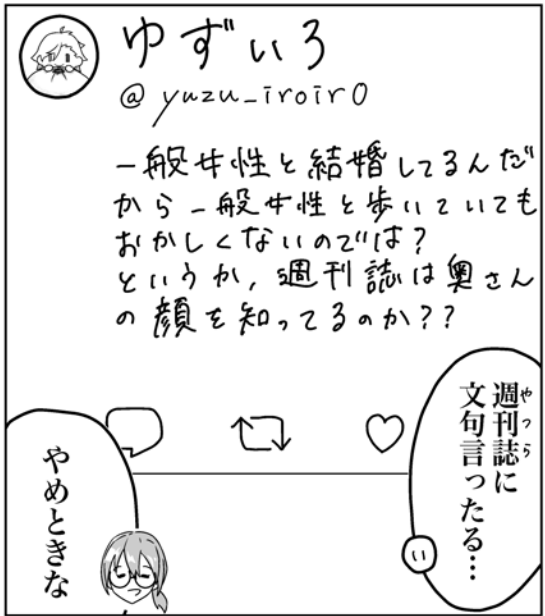 ゆずいろ
@yuzu_iroir0
一般女性と結婚してるんだ
から一般女性と歩いていても
おかしくないのでは?
というか、週刊誌は奥さん
の顔を知ってるのか??
週刊誌に
やつら
文句言ったる…
い
やめときな